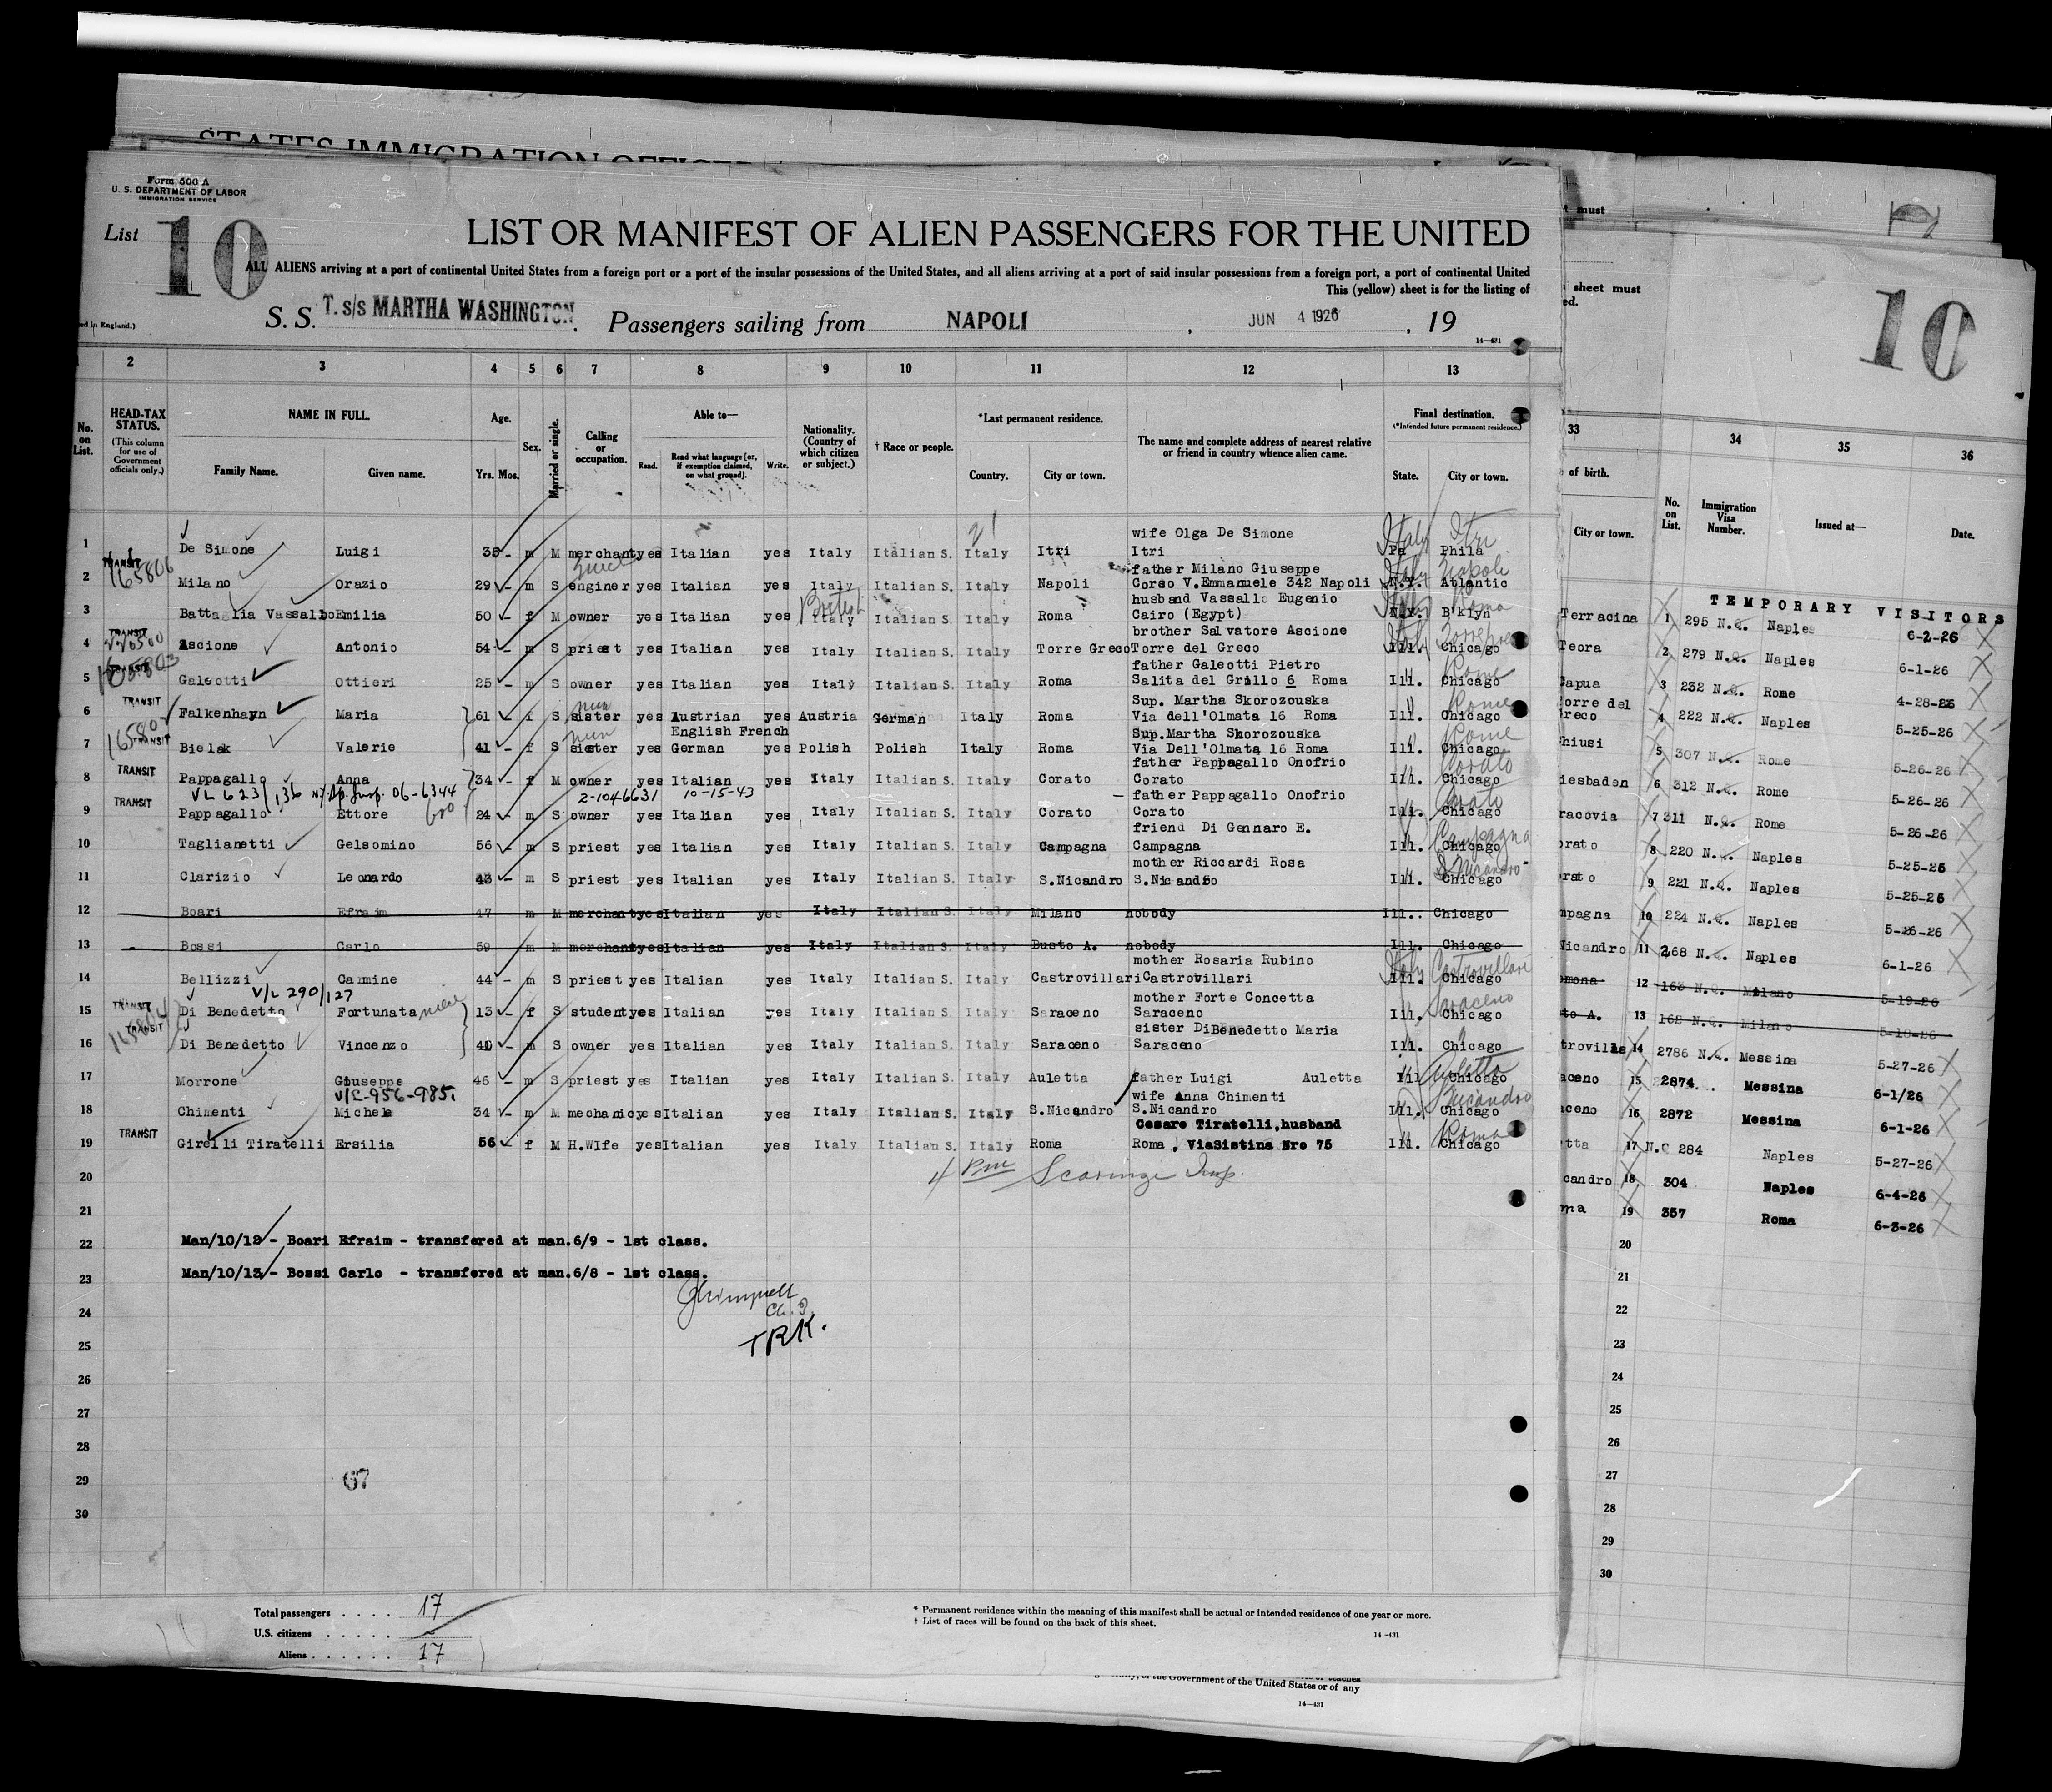 Form 500 A
U. S. DEPARTMENT OF LABOR
IMMIGRATION SERVICE
List 10
LIST OR MANIFEST OF ALIEN PASSENGERS FOR THE UNITED
ALL ALIENS arriving at a port of continental United States from a foreign port or a port of the insular possessions of the United States, and all aliens arriving at a port of said insular possessions from a foreign port, a port of continental United
This (yellow) sheet is for the listing of
S. S. T. s/s MARTHA WASHINGTON. Passengers sailing from NAPOLI, JUN 4 1926, 19
ed in England.)
14-431
must
sheet must
ed.
10
2 3 4 5 6 7 8 9 10 11 12 13
33 34 35 36
No. on List.
HEAD-TAX STATUS.
(This column for use of Government officials only.)
NAME IN FULL.
Family Name. Given name.
Age.
Yrs. Mos.
Sex.
Married or single.
Calling or occupation.
Able to—
Read. Read what language [or, if exemption claimed, on what ground]. Write.
Nationality. (Country of which citizen or subject.)
† Race or people.
*Last permanent residence.
Country. City or town.
The name and complete address of nearest relative or friend in country whence alien came.
Final destination.
(*Intended future permanent residence.)
State. City or town.
of birth.
City or town.
No. on List.
Immigration Visa Number.
Issued at—
Date.
TEMPORARY VISITORS
wife Olga De Simone
1 De Simone Luigi 35 - m M merchant yes Italian yes Italy Italian S. Italy Itri Itri Pa Phila Italy Itri
Terracina 1 295 N.Q. Naples 6-2-26
TRANSIT
165806
father Milano Giuseppe
2 Milano Orazio 29 - m S enginer yes Italian yes Italy Italian S. Italy Napoli Corso V.Emmanuele 342 Napoli N.Y. Atlantic Italy Napoli
Teora 2 279 N.Q. Naples 6-1-26
husband Vassallo Eugenio
3 Battaglia Vassallo Emilia 50 - f M owner yes Italian yes Italy British Italian S. Italy Roma Cairo (Egypt) N.Y. B'klyn Italy Roma
Capua 3 232 N.Q. Rome 4-28-26
TRANSIT
brother Salvatore Ascione
4 Ascione Antonio 54 - m S priest yes Italian yes Italy Italian S. Italy Torre Greco Torre del Greco Ill. Chicago Italy
Torre del Greco 4 222 N.Q. Naples 5-25-26
165803
TRANSIT
father Galeotti Pietro
5 Galeotti Ottieri 25 - m S owner yes Italian yes Italy Italian S. Italy Roma Salita del Grillo 6 Roma Ill. Chicago Rome
Chiusi 5 307 N.Q. Rome 5-26-26
TRANSIT
Sup. Martha Skorozouska
6 Falkenhayn Maria 61 - f S sister nun yes Austrian yes Austria German Italy Roma Via dell'Olmata 16 Roma Ill. Chicago Rome
iesbaden 6 312 N.Q. Rome 5-26-26
TRANSIT
English French
Sup.Martha Skorozouska
7 Bielak Valerie 41 - f S sister nun yes German yes Polish Polish Italy Roma Via Dell'Olmata 16 Roma Ill. Chicago Rome
racovia 7 311 N.Q. Rome 5-26-26
TRANSIT
father Pappagallo Onofrio
8 Pappagallo Anna 34 - f M owner yes Italian yes Italy Italian S. Italy Corato Corato Ill. Chicago Corato
orato 8 220 N.Q. Naples 5-25-26
VL 623/136 06-6344
2-1046631 10-15-43
TRANSIT
father Pappagallo Onofrio
9 Pappagallo Ettore bro 24 - m S owner yes Italian yes Italy Italian S. Italy Corato Corato Ill. Chicago Corato
rato 9 221 N.Q. Naples 5-25-26
friend Di Gennaro E.
10 Taglianetti Gelsomino 56 - m S priest yes Italian yes Italy Italian S. Italy Campagna Campagna Ill. Chicago Campagna
mpagna 10 224 N.Q. Naples 5-26-26
mother Riccardi Rosa
11 Clarizio Leonardo 43 - m S priest yes Italian yes Italy Italian S. Italy S.Nicandro S.Nicandro Ill. Chicago S.Nicandro
Nicandro 11 268 N.Q. Naples 6-1-26
12 Boari Efraim 47 m M merchant yes Italian yes Italy Italian S. Italy Milano nobody Ill.. Chicago
mona 12 163 N.Q. Milano 5-19-26
13 Bossi Carlo 59 m M merchant yes Italian yes Italy Italian S. Italy Busto A. nobody Ill. Chicago
to A. 13 162 N.Q. Milano 5-18-26
mother Rosaria Rubino
14 Bellizzi Carmine 44 - m S priest yes Italian yes Italy Italian S. Italy Castrovillari Castrovillari Ill. Chicago Italy Castrovillari
trovilla 14 2786 N.Q. Messina 5-27-26
V/L 290/127
TRANSIT
mother Forte Concetta
15 Di Benedetto Fortunata niece 13 - f S student yes Italian yes Italy Italian S. Italy Saraceno Saraceno Ill. Chicago Saraceno
aceno 15 2874 Messina 6-1/26
TRANSIT
sister DiBenedetto Maria
16 Di Benedetto Vincenzo 40 - m S owner yes Italian yes Italy Italian S. Italy Saraceno Saraceno Ill. Chicago
aceno 16 2872 Messina 6-1-26
17 Morrone Giuseppe 46 - m S priest yes Italian yes Italy Italian S. Italy Auletta father Luigi Auletta Ill Chicago Auletta
etta 17 N.Q 284 Naples 5-27-26
V/L-956-985.
wife Anna Chimenti
18 Chimenti Michele 34 - m M mechanic yes Italian yes Italy Italian S. Italy S.Nicandro S.Nicandro Ill. Chicago S.Nicandro
candro 18 304 Naples 6-4-26
TRANSIT
Cesare Tiratelli,husband
19 Girelli Tiratelli Ersilia 56 - f M H.WIfe yes Italian yes Italy Italian S. Italy Roma Roma , ViaSistina Nro 75 Ill. Chicago Roma
ma 19 357 Roma 6-3-26
20 4 Pm Scaringe Insp. 20
21 21
22 Man/10/12 - Boari Efraim - transfered at man.6/9 - 1st class. 22
23 Man/10/13 - Bossi Carlo - transfered at man.6/8 - 1st class. 23
24 24
TRK.
25 25
26 26
27 27
28 28
29 67 29
30 30
Total passengers . . . . 17
U.S. citizens . . . . .
Aliens . . . . . . 17
* Permanent residence within the meaning of this manifest shall be actual or intended residence of one year or more.
† List of races will be found on the back of this sheet.
14-431
the Government of the United States or of any
14-431